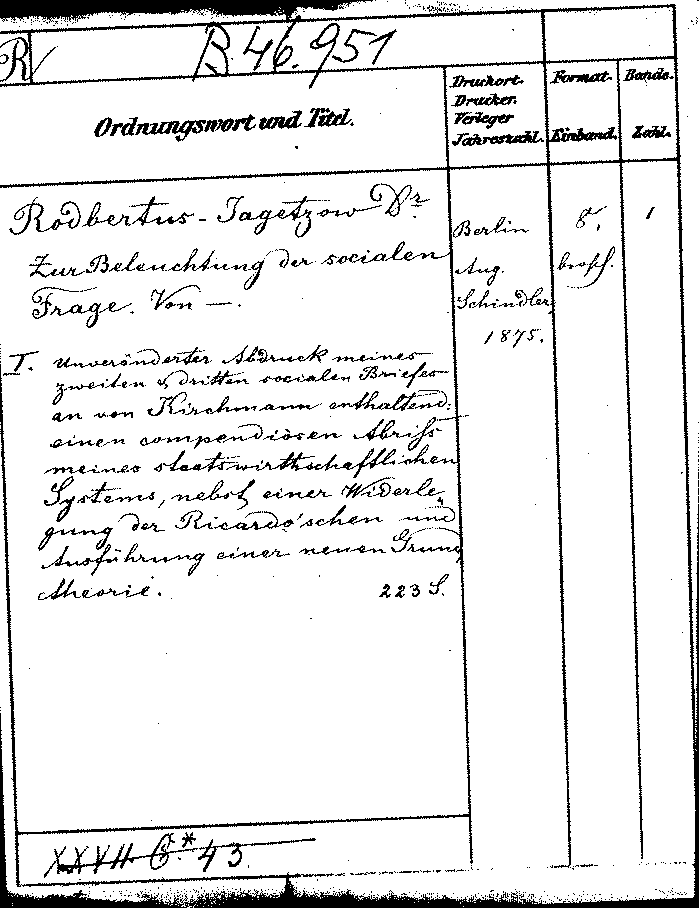 R
B. 46.951
Ordnungswort und Titel.
Druckort.
Drucker.
Verleger
Jahreszahl.
Format.
Einband.
Bände.
Zahl.
Rodbertus-Jagetzow Dr.
Zur Beleuchtung der socialen
Frage. Von —.
Berlin
Aug.
Schindler,
1875.
8°.
brosch.
1
I. Unveränderter Abdruck meines
zweiten & dritten socialen Briefes
an von Kirchmann enthaltend:
einen compendiösen Abriss
meines staatswirthschaftlichen
Systems, nebst einer Widerle-
gung der Ricardo'schen und
Ausführung einer neuen Grund
theorie. 223 S.
XXVII. 43